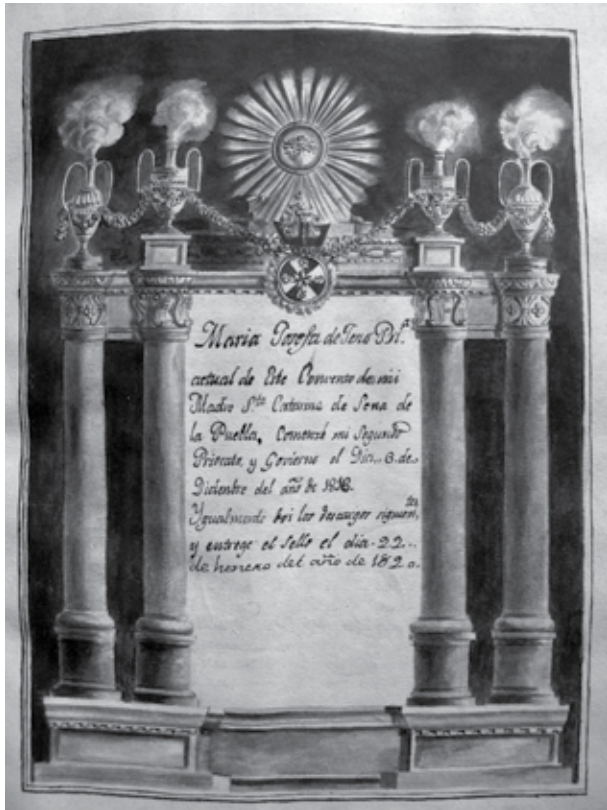 Maria Josefa de Jesus Pl.ª
actual de Este Convento de mi
Madre S.ta Catarina de Sena de
la Puebla, Comenzé mi Segundo
Priorato, y Govierno el Dia..3.de.
Diciembre del año de 1816.
Ygualmente los descargos siguien.tes
y entrege el Sello el dia..22..
de henero del año de 1820.